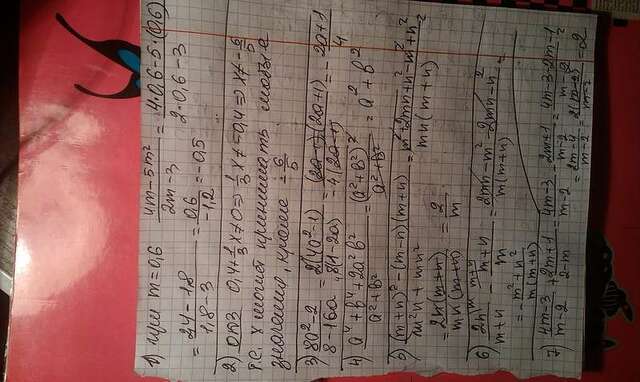 1) при m=0,6 (4m-5m²)/(2m-3) = (4·0,6-5·(0,6)
2·0,6-3
= (2,4-1,8)/(1,8-3) = 0,6/-1,2 = -0,5
2) ОДЗ 0,4+1/3x≠0 ⇒ 1/3x≠-0,4 ⇒ x≠-6/5
т.е. x может принимать любые
значения, кроме -6/5
3) (8a²-2)/(8-16a) = 2(4a²-1)/8(1-2a) = (2a-1)(2a+1)/-4(2a-1) = -(2a+1)/4
4) (a⁴+b⁴+2a²b²)/(a²+b²) = (a²+b²)²/(a²+b²) = a²+b²
5) ((m+n)²-(m-n)(m+n))/(m²n+mn²) = (m²+2mn+n²-m²+n²)/mn(m+n)
= 2n(m+n)/mn(m+n) = 2/m
6) 2n/(m+n) - (m+n)/m = (2mn-m²-2mn-n²)/m(m+n) =
= -(m²+n²)/m(m+n)
7) (4m-3)/(m-2) + (2m+1)/(2-m) = (4m-3)/(m-2) - (2m+1)/(m-2) = (4m-3-2m-1)/(m-2)
= (2m-4)/(m-2) = 2(m-2)/(m-2) = 2